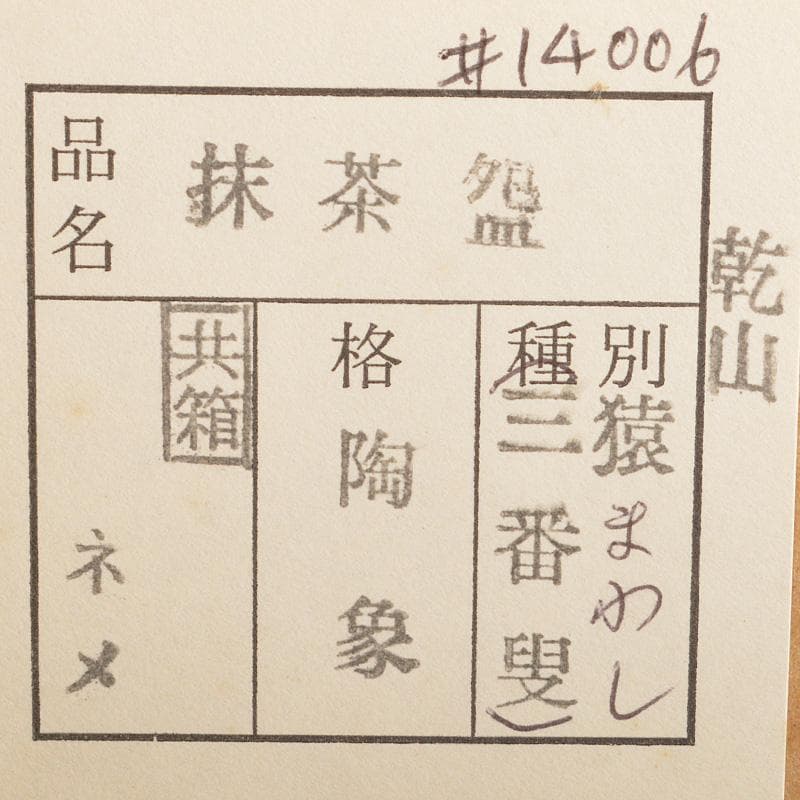 #14006
品名
抹茶盌
乾山
種別
猿まわし
(三番叟)
格
陶象
共箱
ネメ